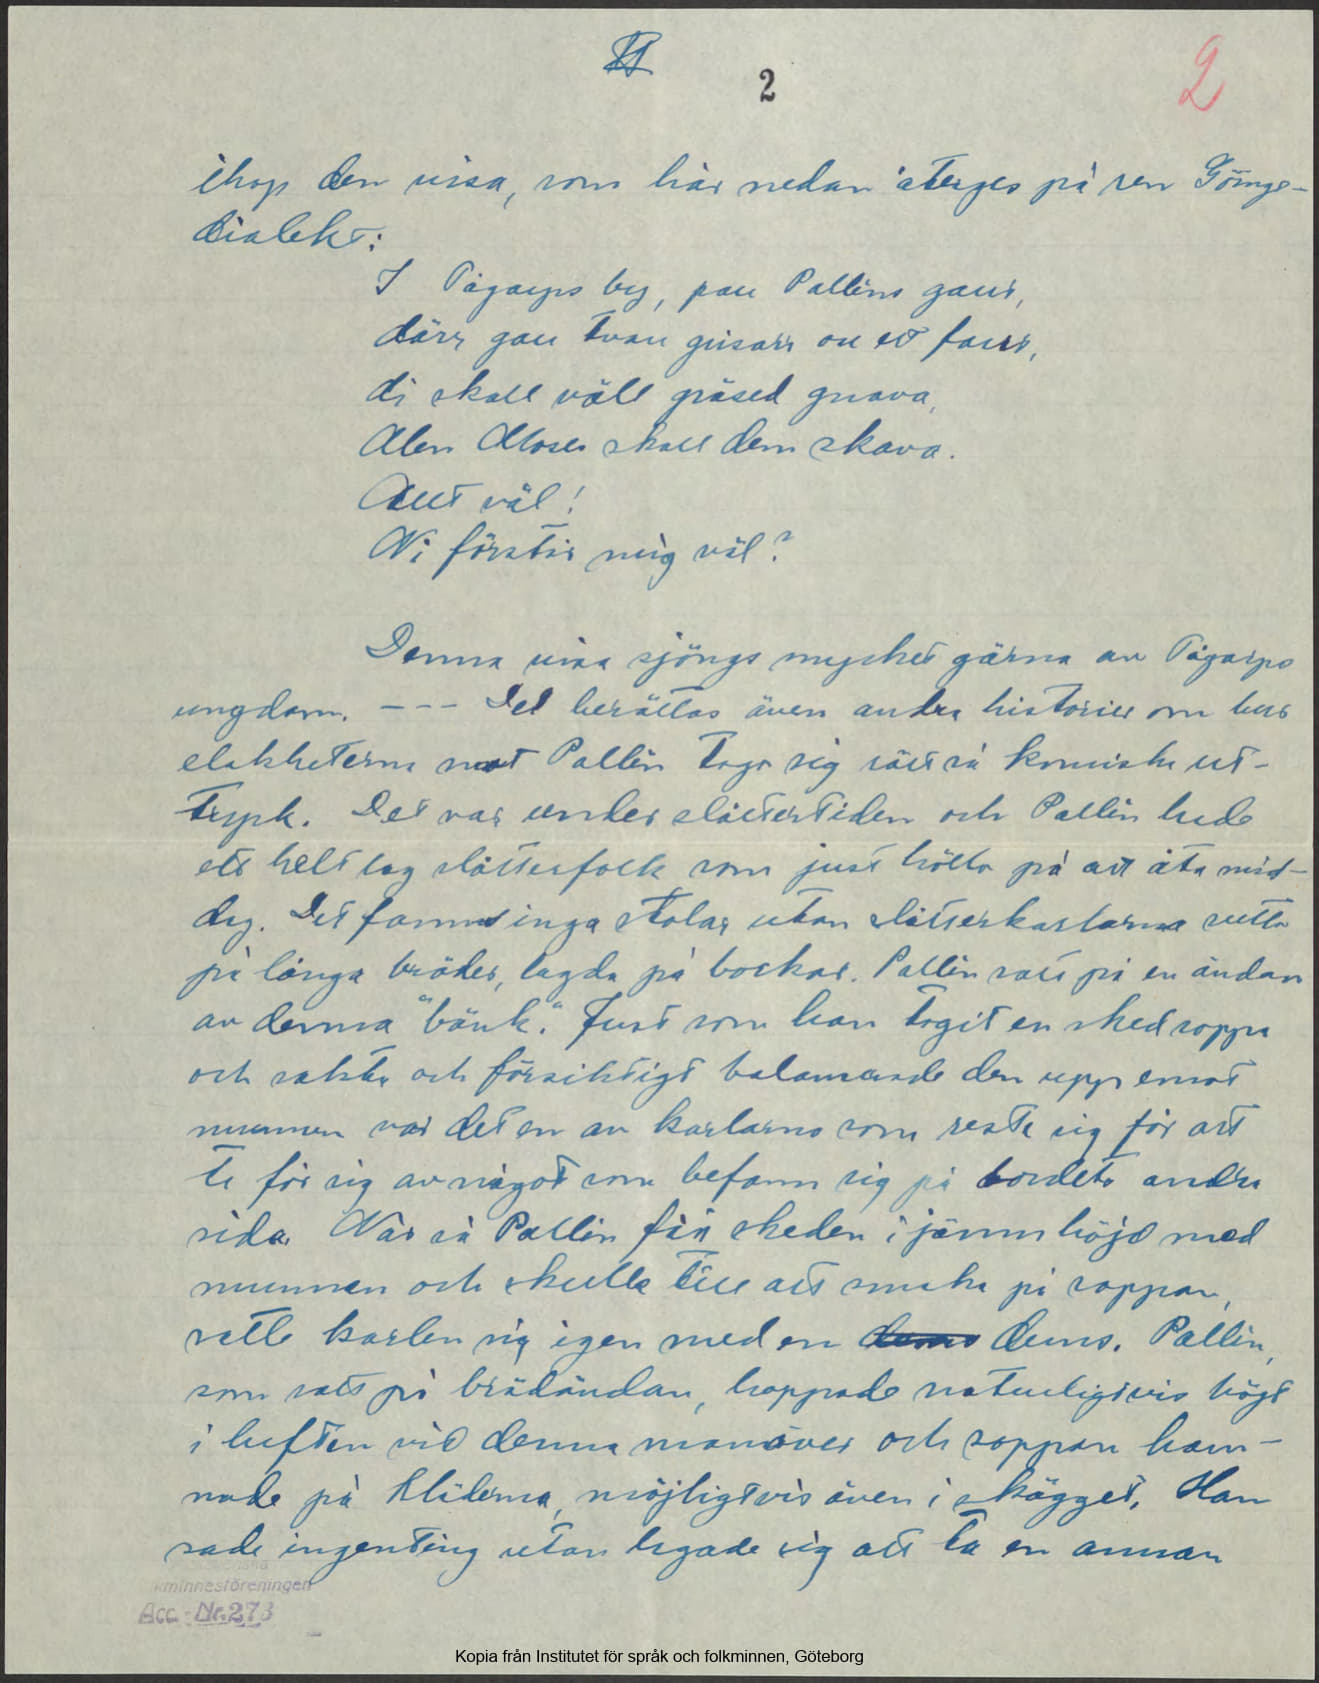 2
2
ihop den visa, som här nedan återges på ren Göinge-
dialekt:
I Tågarps by, pau Pallins gaur,
därr gau tvau grisarr ou et faur,
di skall väll gräsed gnava,
Men Moses skall dem skava.
Allt väl!
Ni förstår mig väl?
Denna visa sjöngs mycket gärna av Tågarps
ungdom. --- Det berättas även andra historier om hur
elakheterna mot Pallin togo sig rätt så komiska ut-
tryck. Det var under slåttertiden och Pallin hade
ett helt lag slåtterfolk som just höllo på att äta mid-
dag. Det fanns inga stolar utan slåtterkarlarna sutto
på långa bräder, lagda på bockar. Pallin satt på en ändan
av denna "bänk". Just som han tagit en sked soppa
och sakta och försiktigt balanserade den upp emot
munnen var det en av karlarna som reste sig för att
ta för sig av något som befann sig på bordets andra
sida. När så Pallin fån skeden i jämn höjd med
munnen och skulle till att smaka på soppan,
satte karlen sig igen med en duns. Pallin,
som satt på brädändan, hoppade naturligtvis högt
i luften vid denna manöver och soppan ham-
nade på kläderna, möjligtvis även i skägget. Han
sade ingenting utan lagade sig att ta en annan
kminnesföreningen
Acc.-Nr. 273
Kopia från Institutet för språk och folkminnen, Göteborg